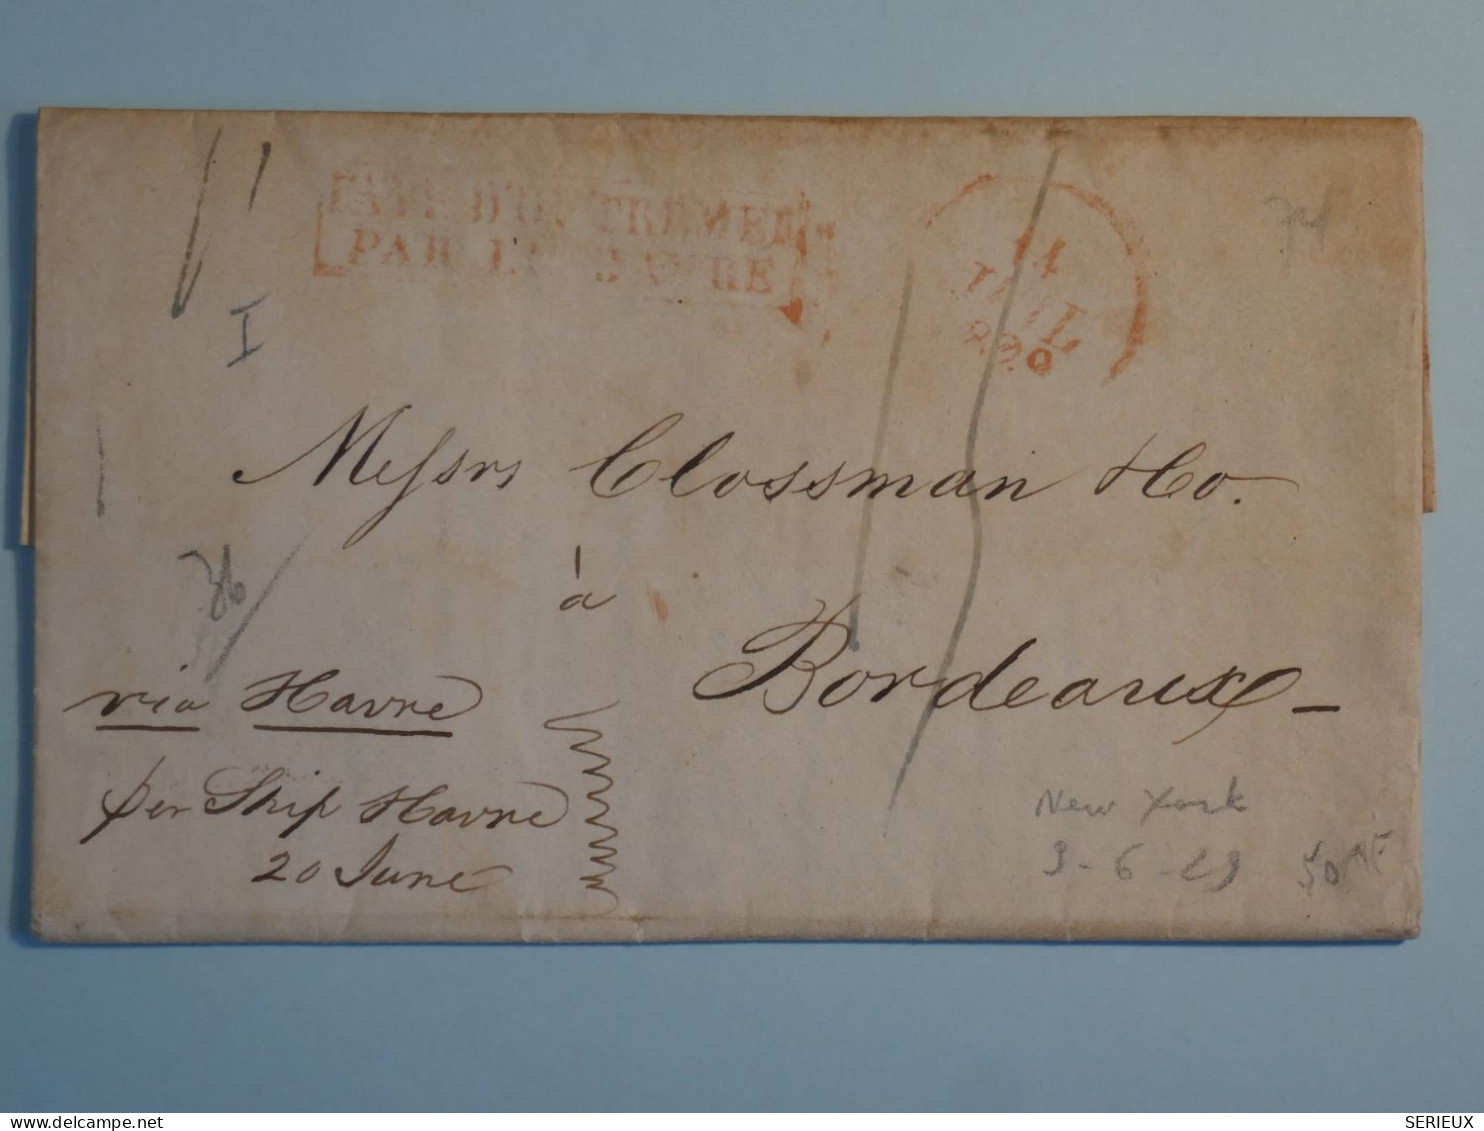 PAYS D'OUTREMER
PAR LE HAVRE
14
JUIL
I
Messrs Clossman & Co.
à
Bordeaux
via Havre
per Ship Havre
20 June
New York
9-6-29
www.delcampe.net
SERIEUX